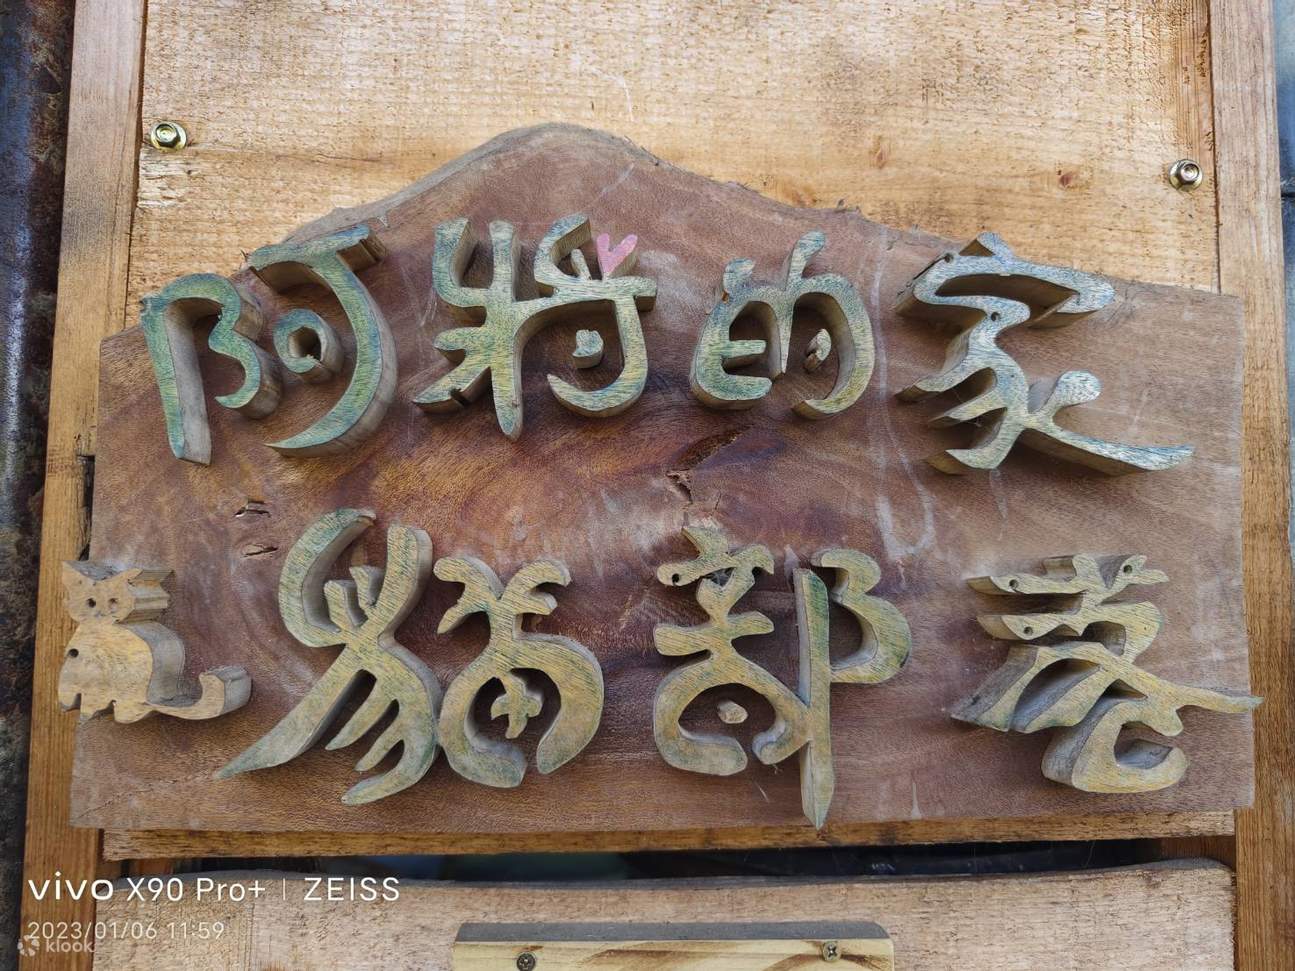 阿將的家
貓部巷
vivo X90 Pro+ | ZEISS
2023/01/06 11:59
klook